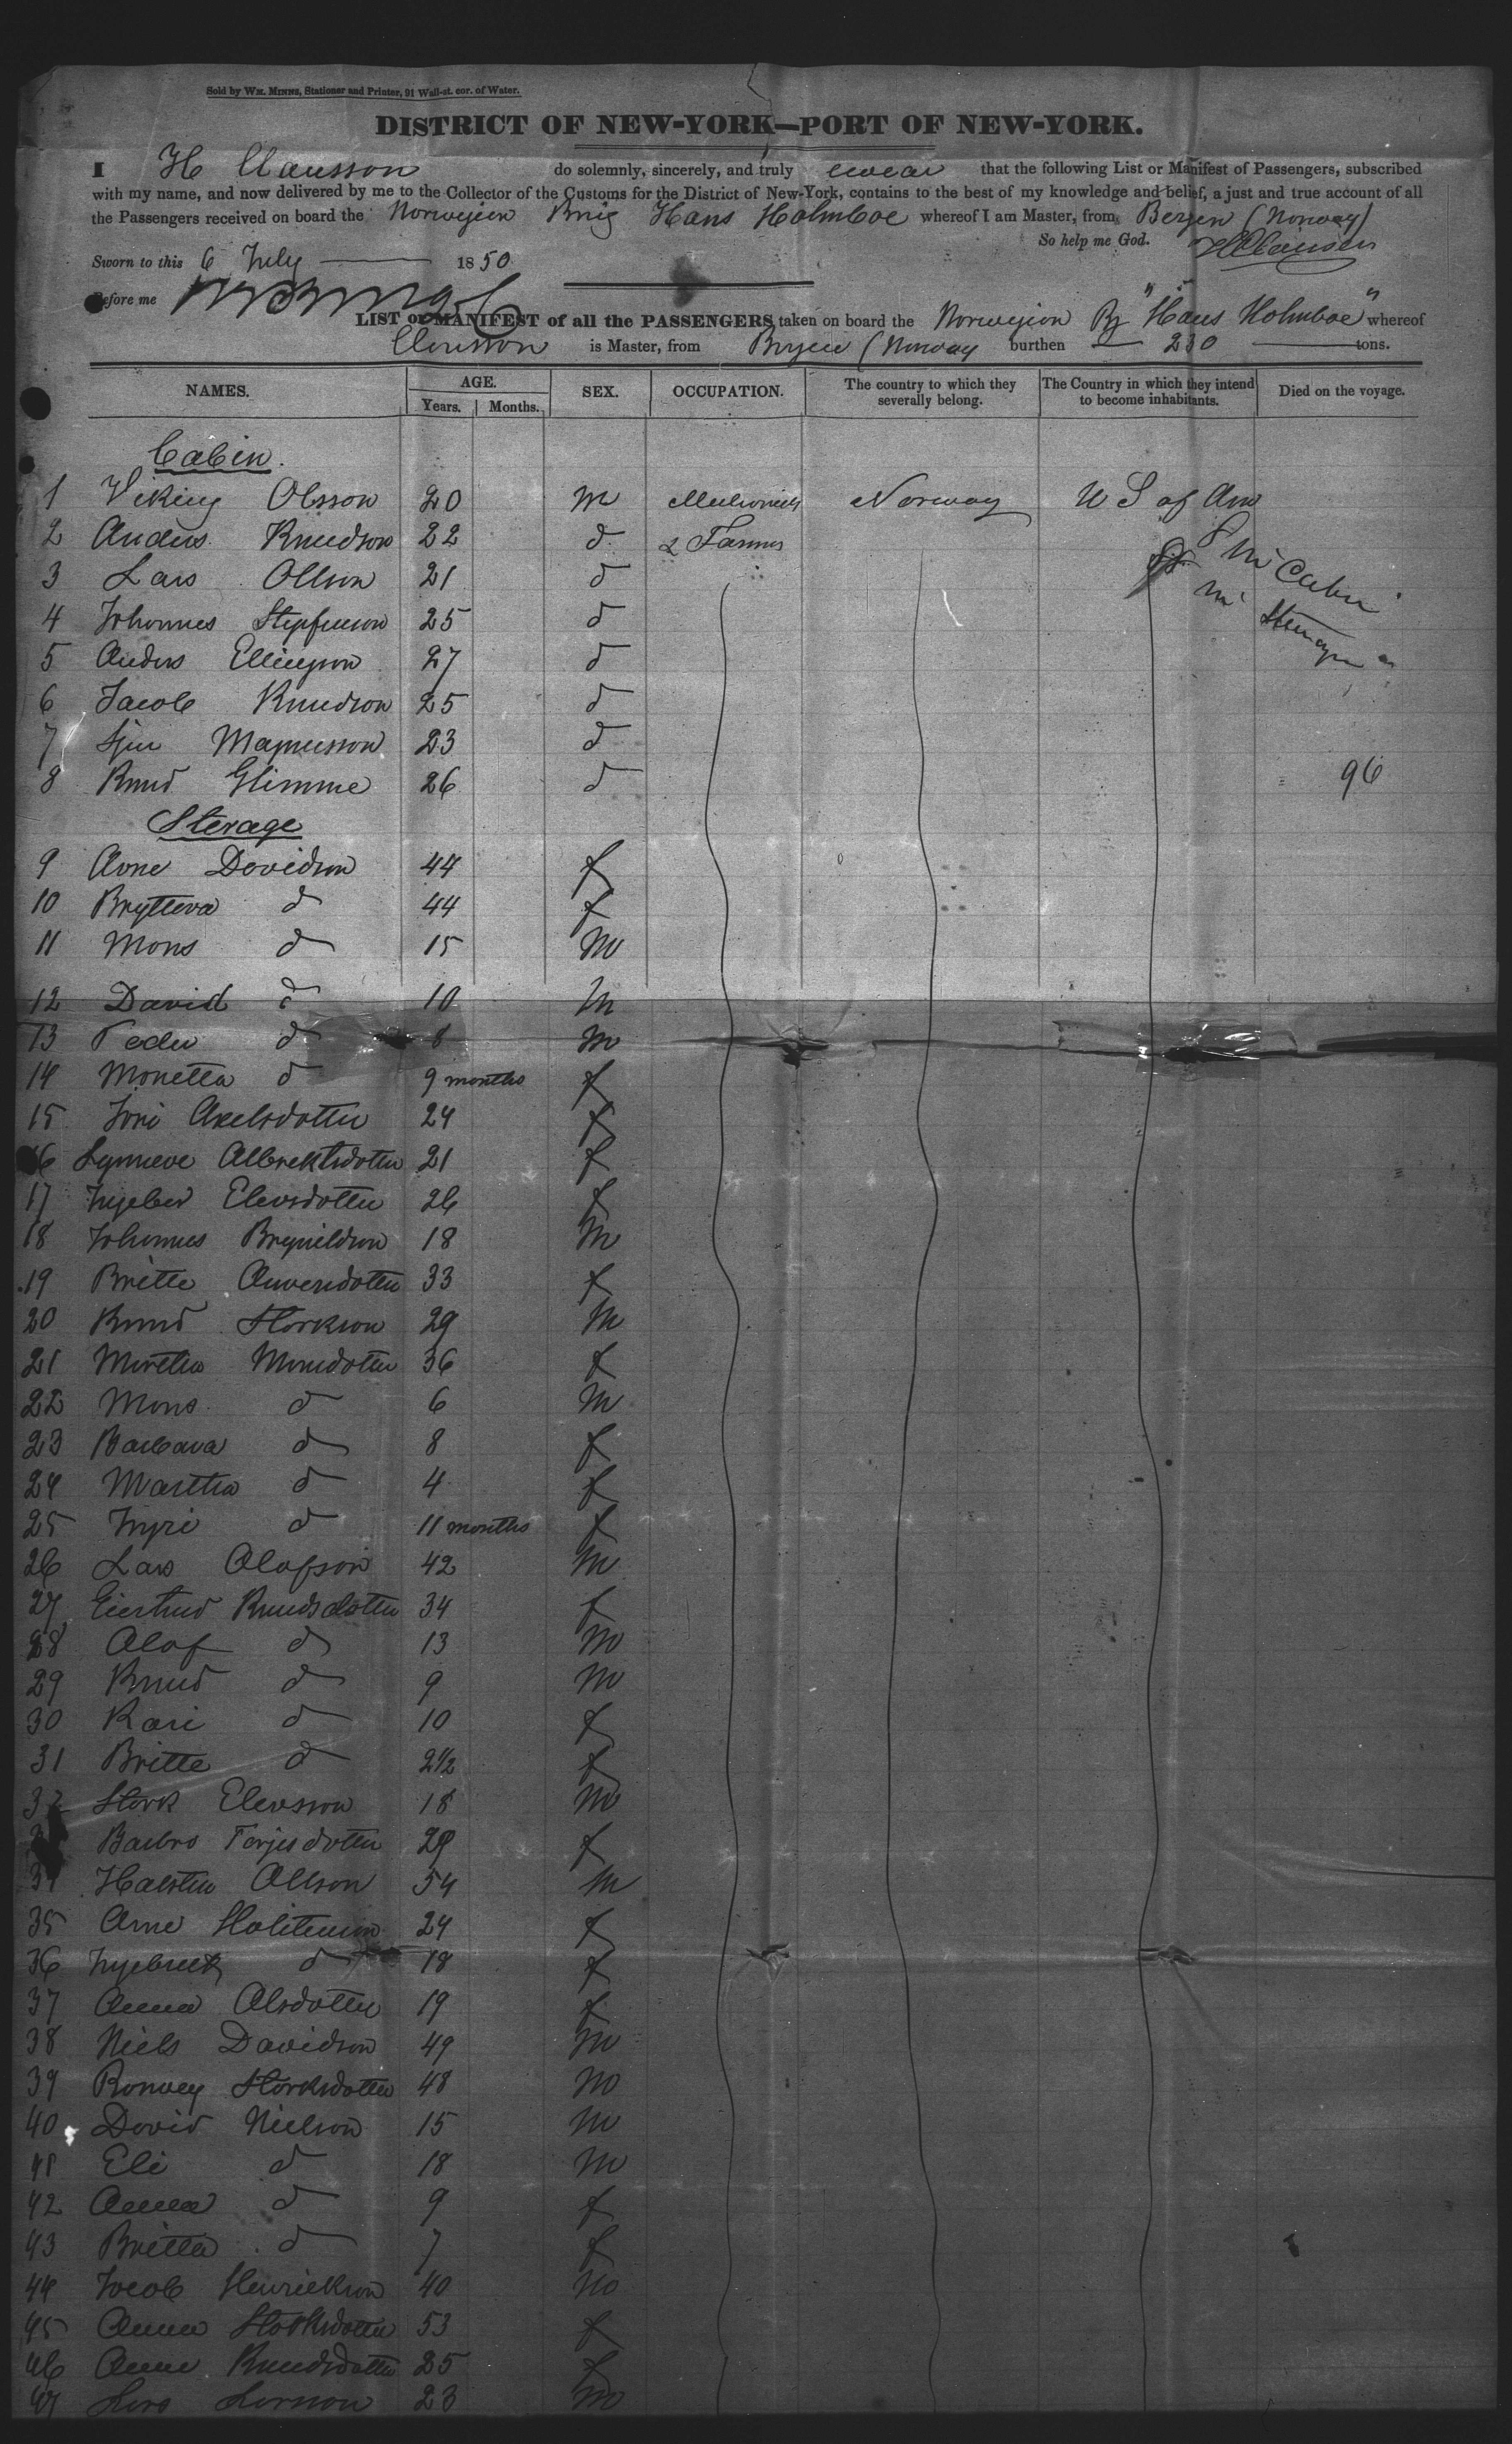 Sold by WM. MINNS, Stationer and Printer, 91 Wall-st. cor. of Water.
DISTRICT OF NEW-YORK—PORT OF NEW-YORK.
I H Clausson do solemnly, sincerely, and truly swear that the following List or Manifest of Passengers, subscribed
with my name, and now delivered by me to the Collector of the Customs for the District of New-York, contains to the best of my knowledge and belief, a just and true account of all
the Passengers received on board the Norwegian Brig Hans Holmboe whereof I am Master, from Bergen (Norway)
So help me God. HClausen
Sworn to this 6 July 1850
Before me
LIST or MANIFEST of all the PASSENGERS taken on board the Norwegian Bg "Hans Holmboe" whereof
Clausson is Master, from Bergen (Norway burthen 230 tons.
NAMES. AGE. SEX. OCCUPATION. The country to which they severally belong. The Country in which they intend to become inhabitants. Died on the voyage.
Years. Months.
Cabin.
1 Viking Olsson 20 m Mechanich Norway U S of Am
2 Anders Knudson 22 d & Farmer
8 in Cabin
3 Lars Ollson 21 d
88 in Sterage
4 Johannes Stepfenson 25 d
5 Anders Ellingson 27 d
6 Jacob Knudson 25 d
7 Sjur Magnusson 23 d
8 Knud Glimme 26 d 96
Sterage
9 Arne Davidson 44 f
10 Brytteva d 44 f
11 Mons d 15 m
12 David d 10 m
13 Peder d 8 m
14 Monetta d 9 months f
15 Joni Axelsdotter 24 f
16 Synneve Albrektsdotter 21 f
17 Ingeber Elevsdotter 26 f
18 Johannes Brynildson 18 m
19 Britte Anversdotter 33 f
20 Knud Storkson 29 m
21 Moretha Monsdotter 36 f
22 Mons d 6 m
23 Barbara d 8 f
24 Martha d 4 f
25 Ingri d 11 months f
26 Lars Olafson 42 m
27 Giertrud Knudsdotter 34 f
28 Olaf d 13 m
29 Knud d 9 m
30 Kari d 10 f
31 Britte d 2½ f
32 Stork Elevsson 18 m
Barbro Torjesdotter 29 f
34 Halstin Ollson 54 m
35 Arne 24 f
36 d 18 f
37 Anna Olsdotter 19 f
38 Niels Davidson 49 m
39 Ronvey Storksdotter 48 m
40 David Nielson 15 m
41 Eli d 18 m
42 Anna d 9 f
43 Britta d 7 f
44 Jacob Henrickson 40 m
45 Anna Storksdotter 53 f
46 Anne Knudsdotter 25 f
47 Lars Larsson 23 m